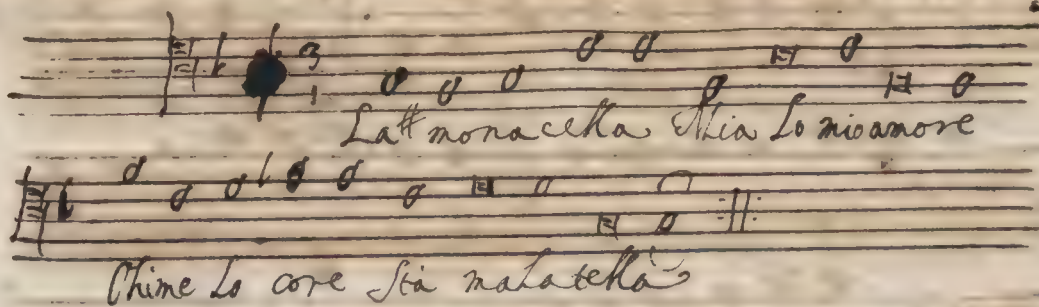 3
1
La monacella Mia Lo mio amore
Ohime Lo core sta malatella